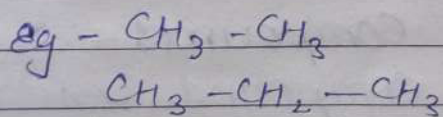 eg - CH₃ - CH₃
CH₃ - CH₂ - CH₃